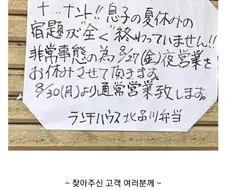 ナ…ナント!! 息子の夏休みの
宿題が全く終わっていません!!
非常事態の為 8/27(金)夜営業を
お休みさせて頂きます。
8/30(月)より通常営業致します。
ランチハウス北品川弁当
~ 찾아주신 고객 여러분께 ~